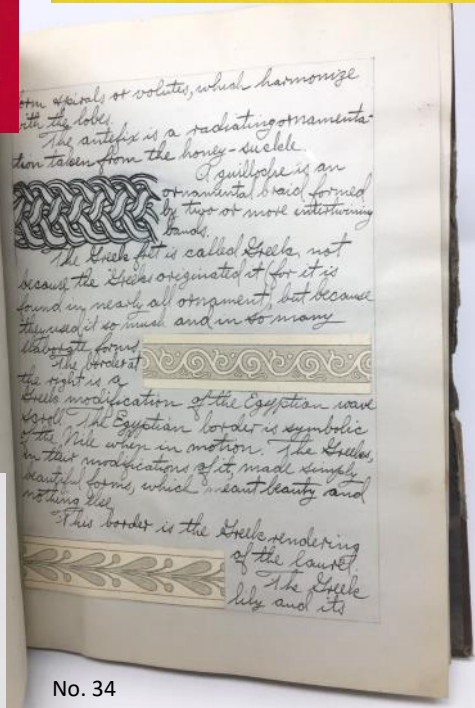 orm spirals or volutes, which harmonize
with the lobes.
The antefix is a radiating ornamenta-
tion taken from the honey-suckle.
A guilloche is an
ornamental braid formed
by two or more entertwining
bands.
The Greek fret is called Greek, not
because the Greeks originated it (for it is
found in nearly all ornament), but because
they used it so much and in so many
elaborate forms.
The border at
the right is a
Greek modification of the Egyptian wave
scroll. The Egyptian border is symbolic
of the Nile when in motion. The Greeks,
in their modifications of it, made simply
beautiful forms, which meant beauty and
nothing else.
This border is the Greek rendering
of the laurel.
The Greek
lily and its
No. 34